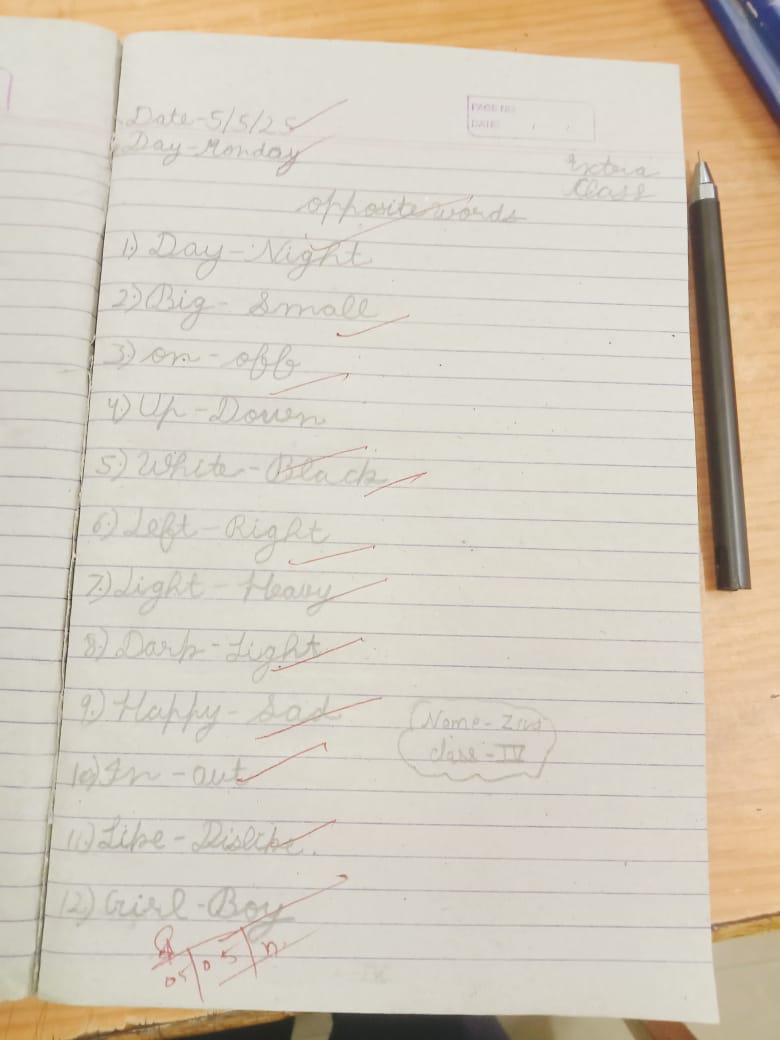 Date-5/5/25
Day-Monday
PAGE NO.
DATE:
Extera
Class
opposite words
1) Day-Night
2) Big- Small
3) on- off
4) Up-Down
5) White-Black
6) Left-Right
7) Light- Heavy
8) Dark-Light
9) Happy-Sad
10) In-out
11) Like-Dislike.
12) Girl-Boy
Name-
class-IV
05/05/